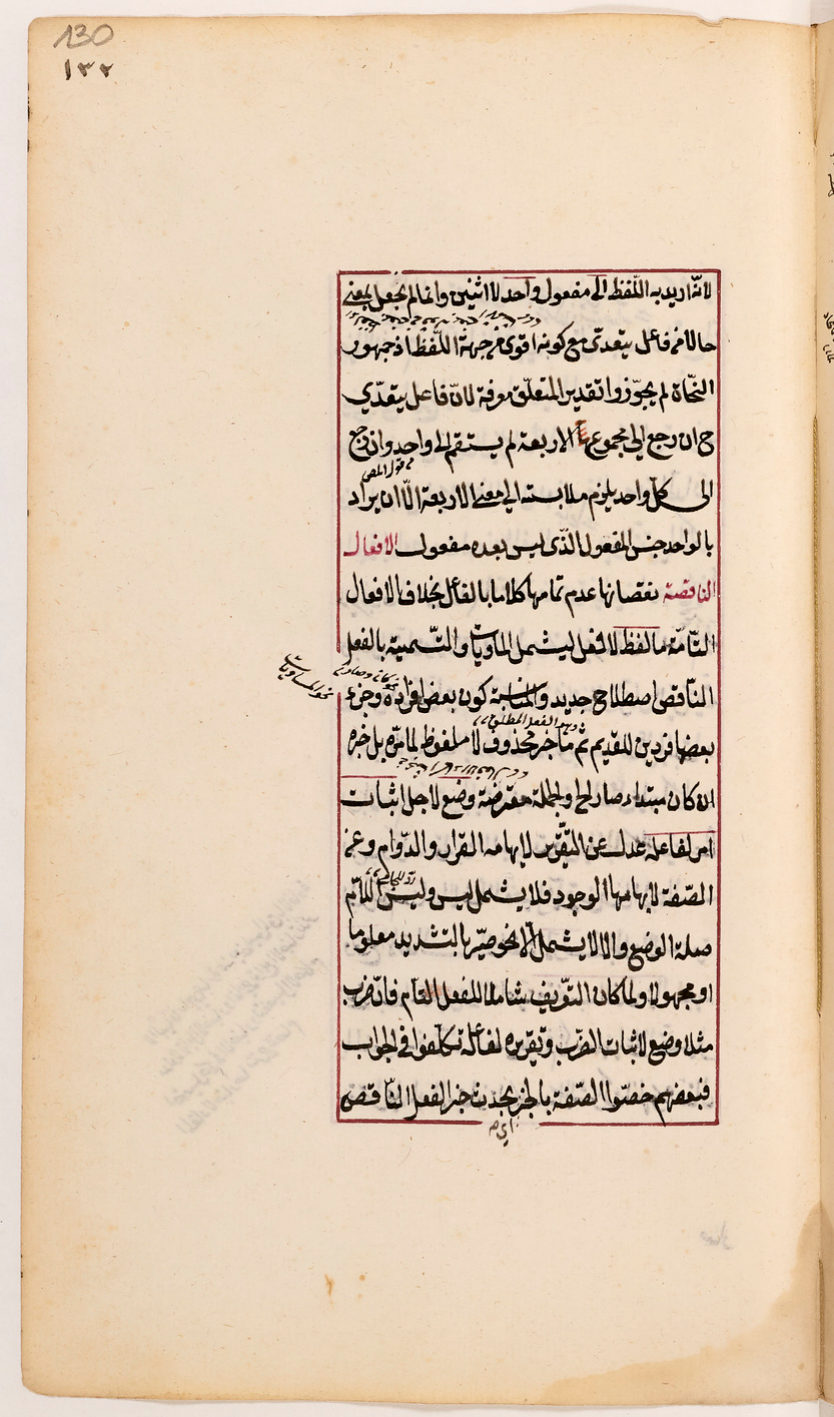 130
١٣٢
لانّه اريد به اللّفظ الى مفعول واحد لا اثنين وانما لم يجعل بمعنى
حالا من فاعل يتعدّى مع كونه اقوى من جهة اللّفظ اذ جمهور
النّحاة لم يجوّزوا تقدير المتعلّق معرفة لانّ فاعل يتعدّى
ح ان رجع الى مجموع الاربعة لم يستقم الى واحد وان رجع
الى كلّ واحد يلزم ملابسته الى معنى الاربعة الّا ان يراد
بالواحد جنس المفعول الذّى ليس بعده مفعول الافعال
الناقصة نقصانها عدم تمامها كلاما بالفاعل بخلاف الافعال
التّامّة ما لفظ لا فعل ليشمل الماويات والتّسمية بالفعل
النّاقص اصطلاح جديد والمناسبة كون بعض افراده وجزء
بعضها فردين للقديم ثم ما خبر محذوف لا ملفوظ لما مرّ بل خبره
ان كان مبتداء صار الخ والجملة معترضة وضع لاجل اثبات
امر لفاعله عدل عن التّقرير لايهامه القرار والدّوام وعن
الصّفة لايهامها الوجود فلا يشمل ليس وليس اللّام
صلة الوضع والا لا يشمل الا نحو صيّر بالتشديد معلوما
او مجهولا ولما كان التّعريف شاملا للفعل التام فانّ ضرب
مثلا وضع لاثبات الضّرب وتقريره لفاعله تكلّفوا فى الجواب
فبعضهم خصّوا الصّفة بالخبر بحدث خبر الفعل النّاقص
اى م